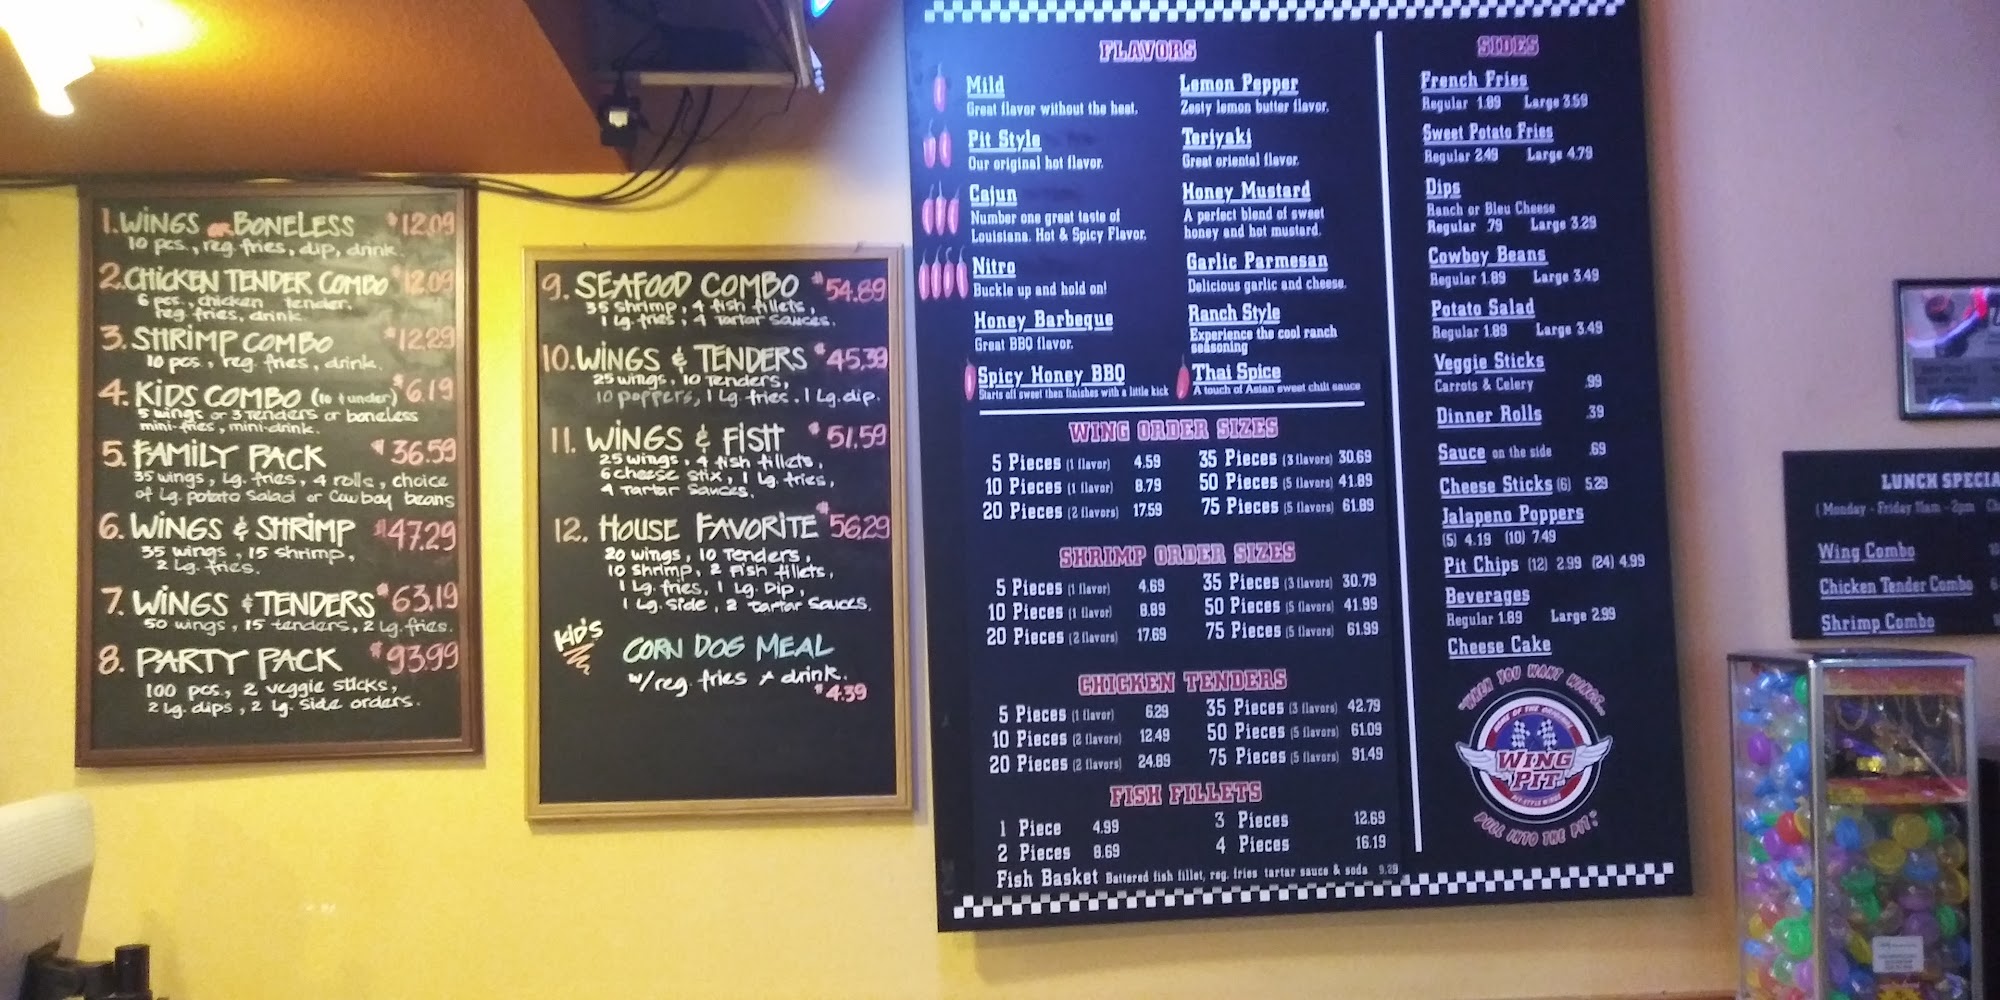 1. WINGS OR BONELESS $12.09
10 pcs., reg. fries, dip, drink.
2. CHICKEN TENDER COMBO $12.09
6 pcs., chicken tender.
reg. fries, drink.
3. SHRIMP COMBO $12.29
10 pcs, reg. fries, drink.
4. KIDS COMBO (10 & under) $6.19
5 wings or 3 Tenders or boneless
mini-fries, mini-drink.
5. FAMILY PACK $36.59
35 wings, Lg. fries, 4 rolls, choice
of Lg. potato Salad or Cowboy beans
6. WINGS & SHRIMP $47.29
35 wings, 15 shrimp,
2 Lg. fries.
7. WINGS & TENDERS $63.19
50 wings, 15 tenders, 2 Lg. fries.
8. PARTY PACK $93.99
100 pcs., 2 veggie sticks,
2 Lg. dips, 2 Lg. Side orders.
9. SEAFOOD COMBO $54.89
35 Shrimp, 4 fish fillets,
1 Lg. fries, 4 Tartar Sauces.
10. WINGS & TENDERS $45.39
25 wings, 10 Tenders,
10 poppers, 1 Lg. fries. 1 Lg. dip.
11. WINGS & FISH $51.59
25 wings, 4 fish fillets,
6 cheese stix, 1 Lg. fries,
4 Tartar Sauces.
12. HOUSE FAVORITE $56.29
20 wings, 10 Tenders,
10 Shrimp, 2 Fish fillets,
1 Lg. fries, 1 Lg. Dip,
1 Lg. Side, 2 Tartar Sauces.
KID'S
CORN DOG MEAL
w/ reg. fries & drink.
$4.39
FLAVORS
Mild
Great flavor without the heat.
Pit Style
Our original hot flavor.
Cajun
Number one great taste of
Louisiana. Hot & Spicy Flavor.
Nitro
Buckle up and hold on!
Honey Barbeque
Great BBQ flavor.
Spicy Honey BBQ
Starts off sweet then finishes with a little kick
Lemon Pepper
Zesty lemon butter flavor.
Teriyaki
Great oriental flavor.
Honey Mustard
A perfect blend of sweet
honey and hot mustard.
Garlic Parmesan
Delicious garlic and cheese.
Ranch Style
Experience the cool ranch
seasoning
Thai Spice
A touch of Asian sweet chili sauce
WING ORDER SIZES
5 Pieces (1 flavor) 4.59 35 Pieces (3 flavors) 30.69
10 Pieces (1 flavor) 8.79 50 Pieces (5 flavors) 41.89
20 Pieces (2 flavors) 17.59 75 Pieces (5 flavors) 61.89
SHRIMP ORDER SIZES
5 Pieces (1 flavor) 4.69 35 Pieces (3 flavors) 30.79
10 Pieces (1 flavor) 8.89 50 Pieces (5 flavors) 41.99
20 Pieces (2 flavors) 17.69 75 Pieces (5 flavors) 61.99
CHICKEN TENDERS
5 Pieces (1 flavor) 6.29 35 Pieces (3 flavors) 42.79
10 Pieces (2 flavors) 12.49 50 Pieces (5 flavors) 61.09
20 Pieces (2 flavors) 24.89 75 Pieces (5 flavors) 91.49
FISH FILLETS
1 Piece 4.99 3 Pieces 12.69
2 Pieces 8.69 4 Pieces 16.19
Fish Basket Battered fish fillet, reg. fries tartar sauce & soda 9.29
SIDES
French Fries
Regular 1.89 Large 3.59
Sweet Potato Fries
Regular 2.49 Large 4.79
Dips
Ranch or Bleu Cheese
Regular .79 Large 3.29
Cowboy Beans
Regular 1.89 Large 3.49
Potato Salad
Regular 1.89 Large 3.49
Veggie Sticks
Carrots & Celery .99
Dinner Rolls .39
Sauce on the side .69
Cheese Sticks (6) 5.29
Jalapeno Poppers
(5) 4.19 (10) 7.49
Pit Chips (12) 2.99 (24) 4.99
Beverages
Regular 1.89 Large 2.99
Cheese Cake
"WHEN YOU WANT WINGS...
HOME OF THE ORIGINAL
WING PIT
PIT-STYLE WINGS
PULL INTO THE PIT."
LUNCH SPECIA
(Monday - Friday 11am - 2pm
Wing Combo
Chicken Tender Combo
Shrimp Combo